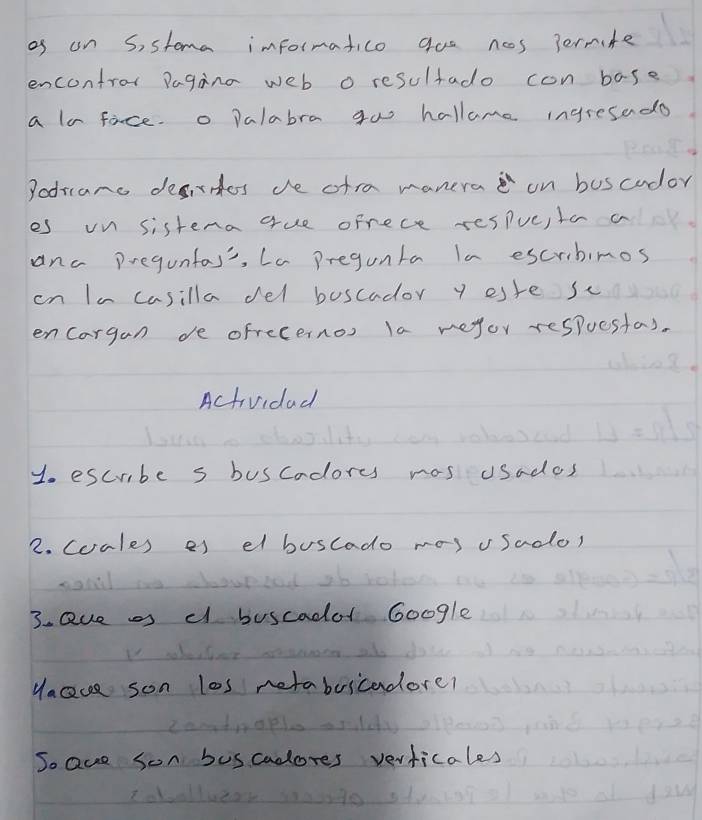 es un sistema informatico que nos permite
encontrar Pagina web o resultado con base
a la face. o Palabra que hallame ingresado
Podriamo desirles de otra manera un buscador
es un sistema que ofrece respuesta a
una Preguntas". La Pregunta la escribimos
en la casilla del buscador y este se
encargan de ofrecernos la mejor respuestas.
Actividad
1. escribe 5 buscadores mas usados
2. Cuales es el buscado mas usados
3. Que es el buscador Google
4. Que son los metabuscadores
5. Que son buscadores verticales